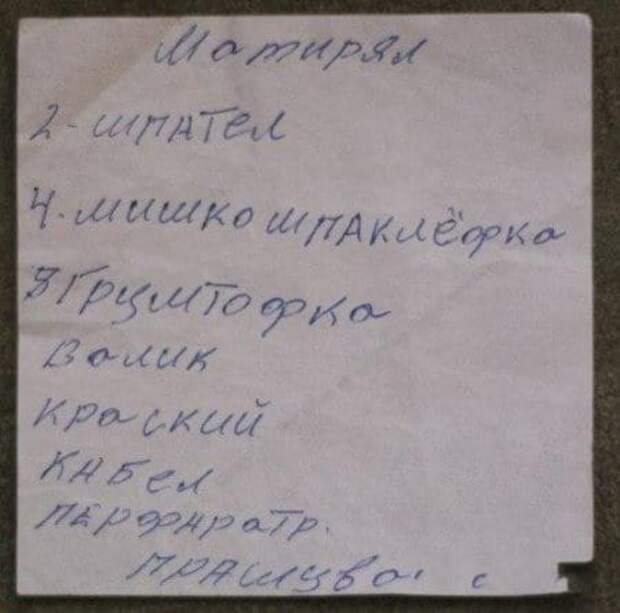 Матирял
2-шпател
4.мишко шпаклёфка
3 Грумтофка
Валик
Краский
Кабел
Перфаратр.